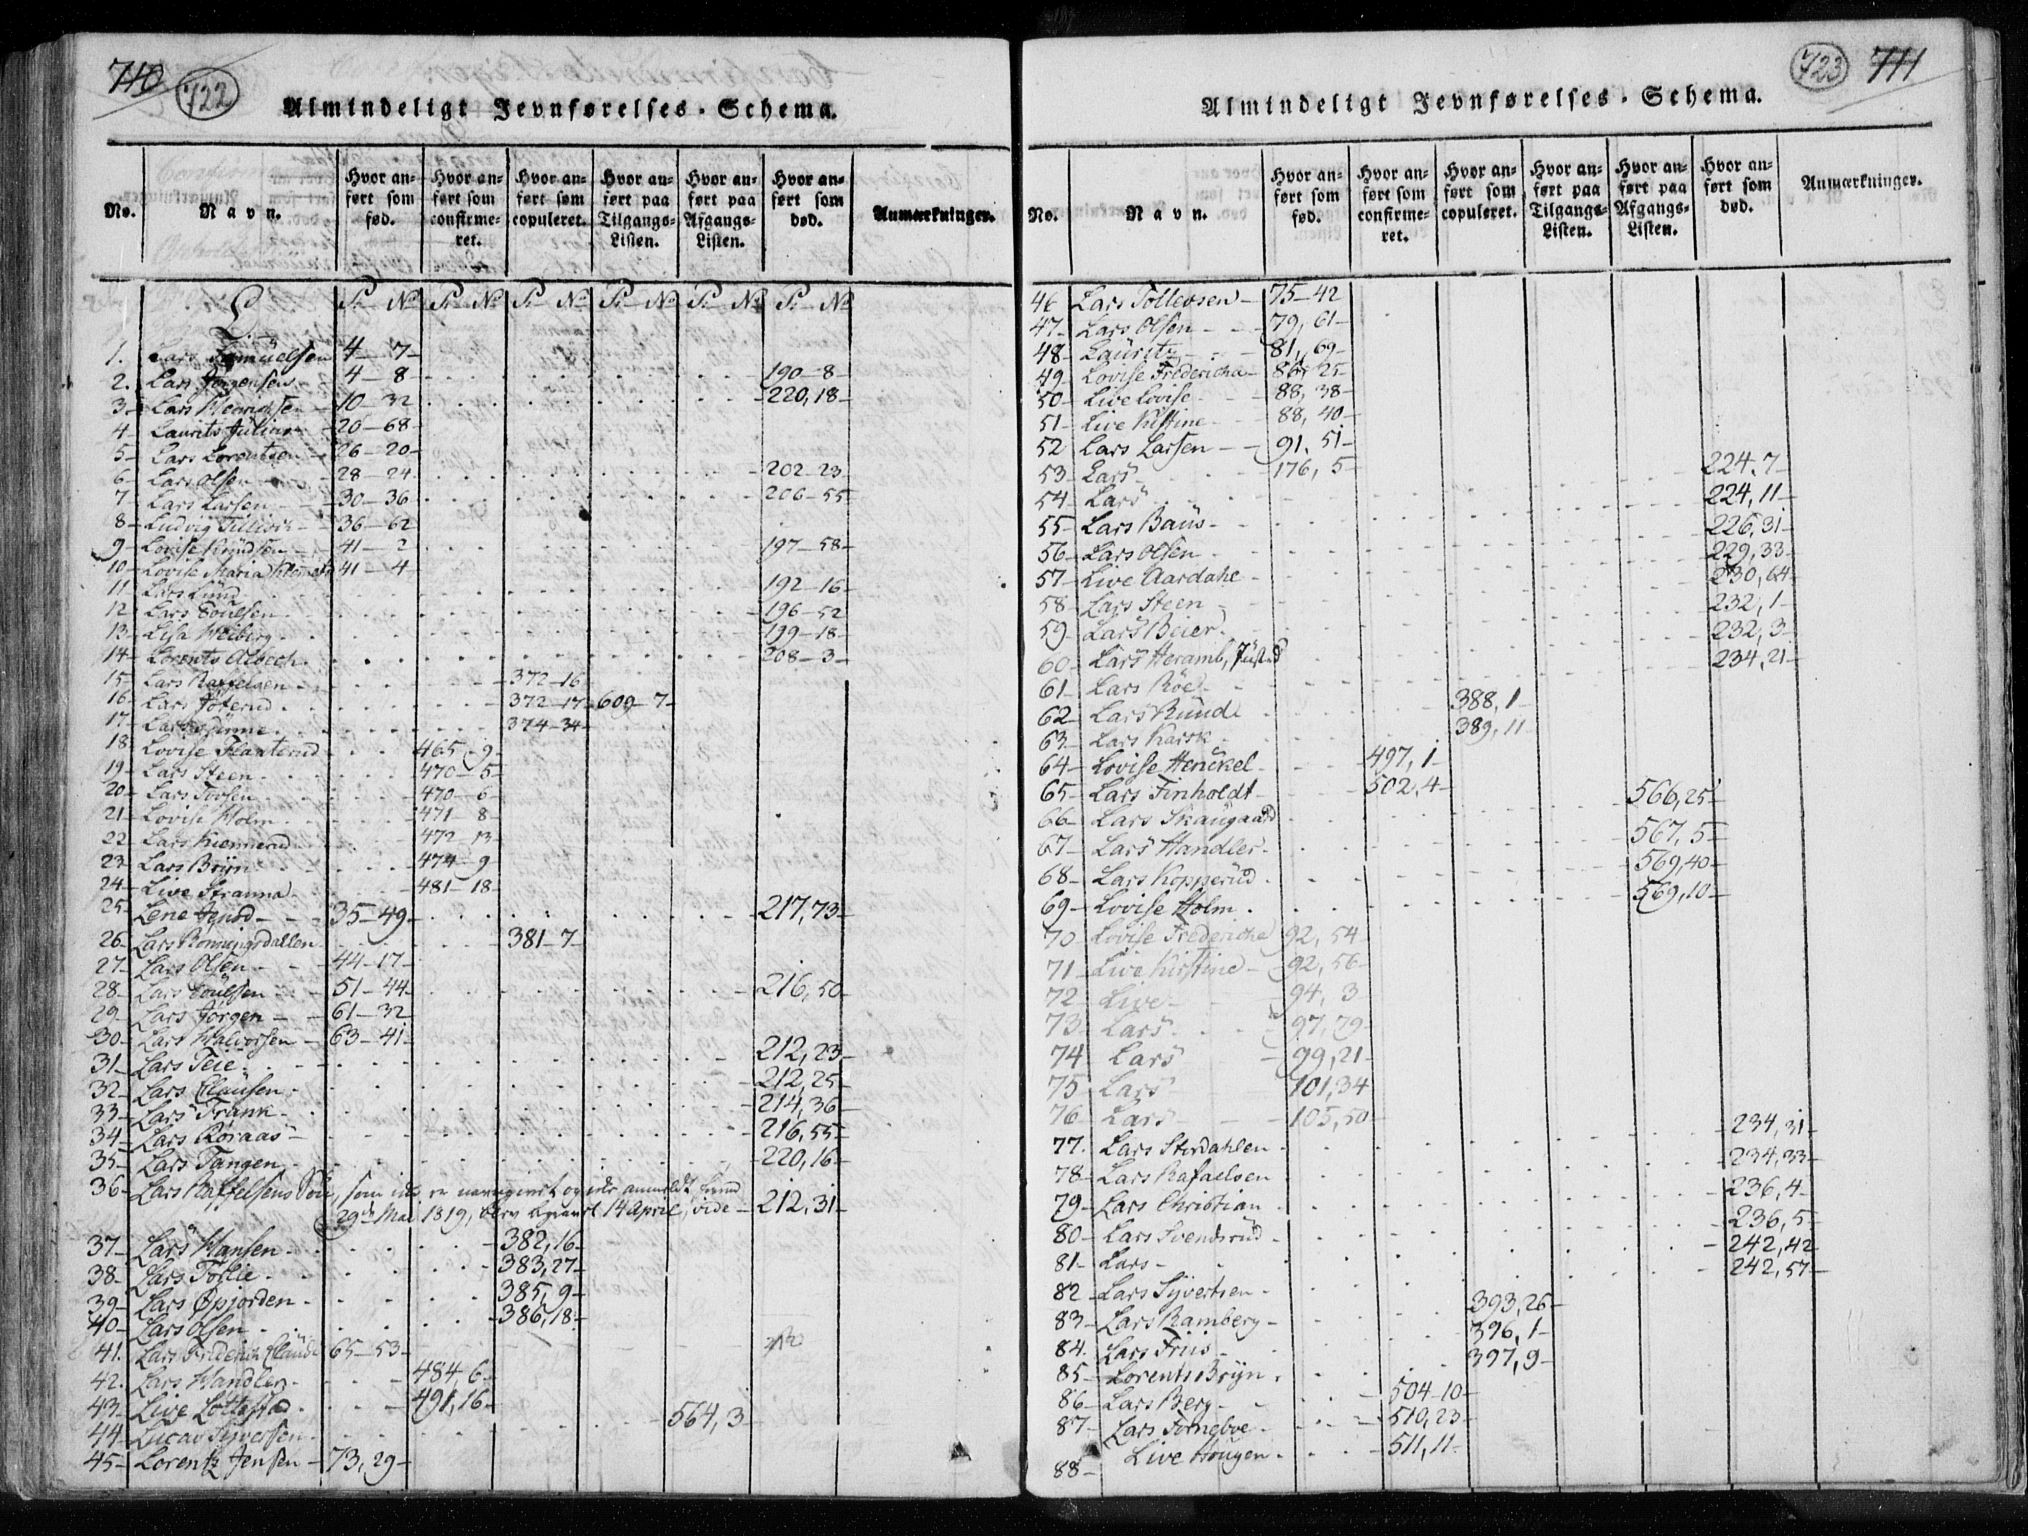 740 722
Almindeligt Jevnførelses-Schema.
No. Navn. Hvor anført som fød. Hvor anført som confirmeret. Hvor anført som copuleret. Hvor anført paa Tilgangs-Listen. Hvor anført paa Afgangs-Listen. Hvor anført som død. Anmærkninger.
L. P. No P. No P. No P. No P. No P. No
1. Lars Samuelsen 4-7-
2. Lars Jørgensen 4-8- 190-8-
3- Lars 10-32 220,18-
4- Laurits Julius 20-68-
5- Lars Lorentsen 26-20-
6- Lars Olsen 28-24 202-23
7- Lars Larsen 30-36 206-55
8- Ludvig 36-62
9- Lovise Knudsen 41-2 197-58-
10- Lovise Maria 41-4
11- Lars Lund 192-16-
12- Lars Poulsen 196-52
13- Lisa Weiberg 199-18-
14- Lorents Albech 208-3-
15- Lars Raffelsen 372-16
16- Lars 372-17 609-7-
17- Lars 374-34-
18- Lovise 465-9-
19- Lars Steen 470-5-
20- Lars 470-6-
21- Lovise Holm 471 8-
22- Lars 472-13
23- Lars Bryn 474-9
24- Live Stranna 481-18-
25- Lene 35-49- 217,73-
26- Lars 381-7-
27- Lars Olsen 44-17-
28- Lars Poulsen 51-44- 216,50-
29- Lars Jørgen 61-32
30- Lars Halvorsen 63-41- 212,23-
31- Lars Teie 212,25-
32- Lars Clausen 214,36-
33- Lars Frank 216,55-
34- Lars Røraas 220,16-
35- Lars Tangen
36- Lars Raffelsens Søn, som ikke er navngivet og ikke anmeldt
29de Mai 1819, blev 14 April, vide 212,31-
37- Lars Hansen 382,16-
38- Lars Toftie 383,27-
39- Lars Opjorden 385,9-
40- Lars Olsen 386,18-
41. Lars Frederich 65-53-
42. Lars Handler 484,6-
43- Live 491,16-
44- Lucas Syversen 564,3-
45- Lorentz Jensen 73,29-
723 711
Almindeligt Jevnførelses-Schema.
No. Navn. Hvor anført som fød. Hvor anført som confirmeret. Hvor anført som copuleret. Hvor anført paa Tilgangs-Listen. Hvor anført paa Afgangs-Listen. Hvor anført som død. Anmærkninger.
46 Lars Tollevsen 75-42
47- Lars Olsen 79,61-
48- Lauritz 81,69-
49- Lovise Fredericha 86,25-
50- Live Lovise 88,38-
51- Live Kistine 88,40-
52 Lars Larsen 91,51-
53- Lars 176,5- 224,7-
54- Lars 224,11-
55- Lars Baüs 226,31-
56- Lars Olsen 229,33-
57- Live Aardahe 230,64-
58- Lars Steen 232,1-
59- Lars Beier 232,3-
60- Lars Heramb, 234,21-
61- Lars Röe
62- Lars Ründe 388,1-
63- Lars Karsk 389,11-
64- Lovise Henckel 497,1-
65- Lars Finholdt 502,4-
66- Lars Skaugaard 566,25-
67- Lars Handler 567,5-
68- Lars Kopperüd 569,40-
69- Lovise Holm 569,10-
70- Lovise Fredericke 92,54-
71- Live Kirstine 92,56-
72- Live 94,3
73- Lars 97,79-
74 Lars 99,21-
75- Lars 101,34
76- Lars 105,50-
77. Lars Stordahlen 234,31-
78- Lars Rafaelsen 234,33-
79- Lars Christian 236,4-
80- Lars Svendsrüd 236,5-
81- Lars 242,42
82- Lars Syvertsen 242,57-
83- Lars Ramberg 393,26-
84. Lars Friis 396,1-
85- Lorents Bryn 397,9-
86- Lars Berg 504-10-
87- Lars Forneboe 510,23-
88- Live Hougen 511,11-